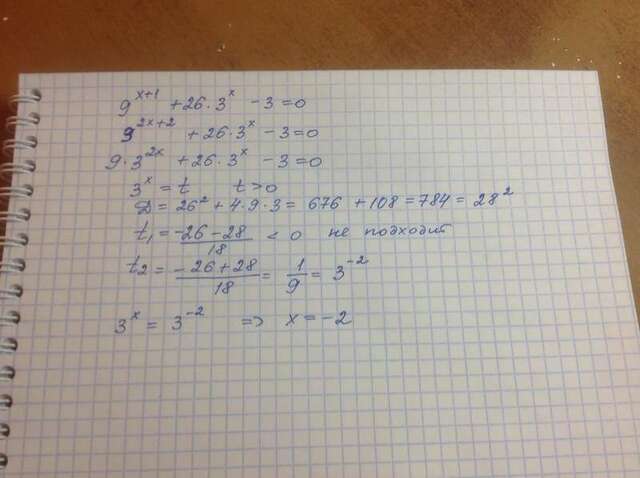 9^{x+1} + 26 · 3^x - 3 = 0
3^{2x+2} + 26 · 3^x - 3 = 0
9 · 3^{2x} + 26 · 3^x - 3 = 0
3^x = t t > 0
D = 26^2 + 4 · 9 · 3 = 676 + 108 = 784 = 28^2
t_1 = \frac{-26-28}{18} < 0 не подходит
t_2 = \frac{-26+28}{18} = \frac{1}{9} = 3^{-2}
3^x = 3^{-2} => x = -2